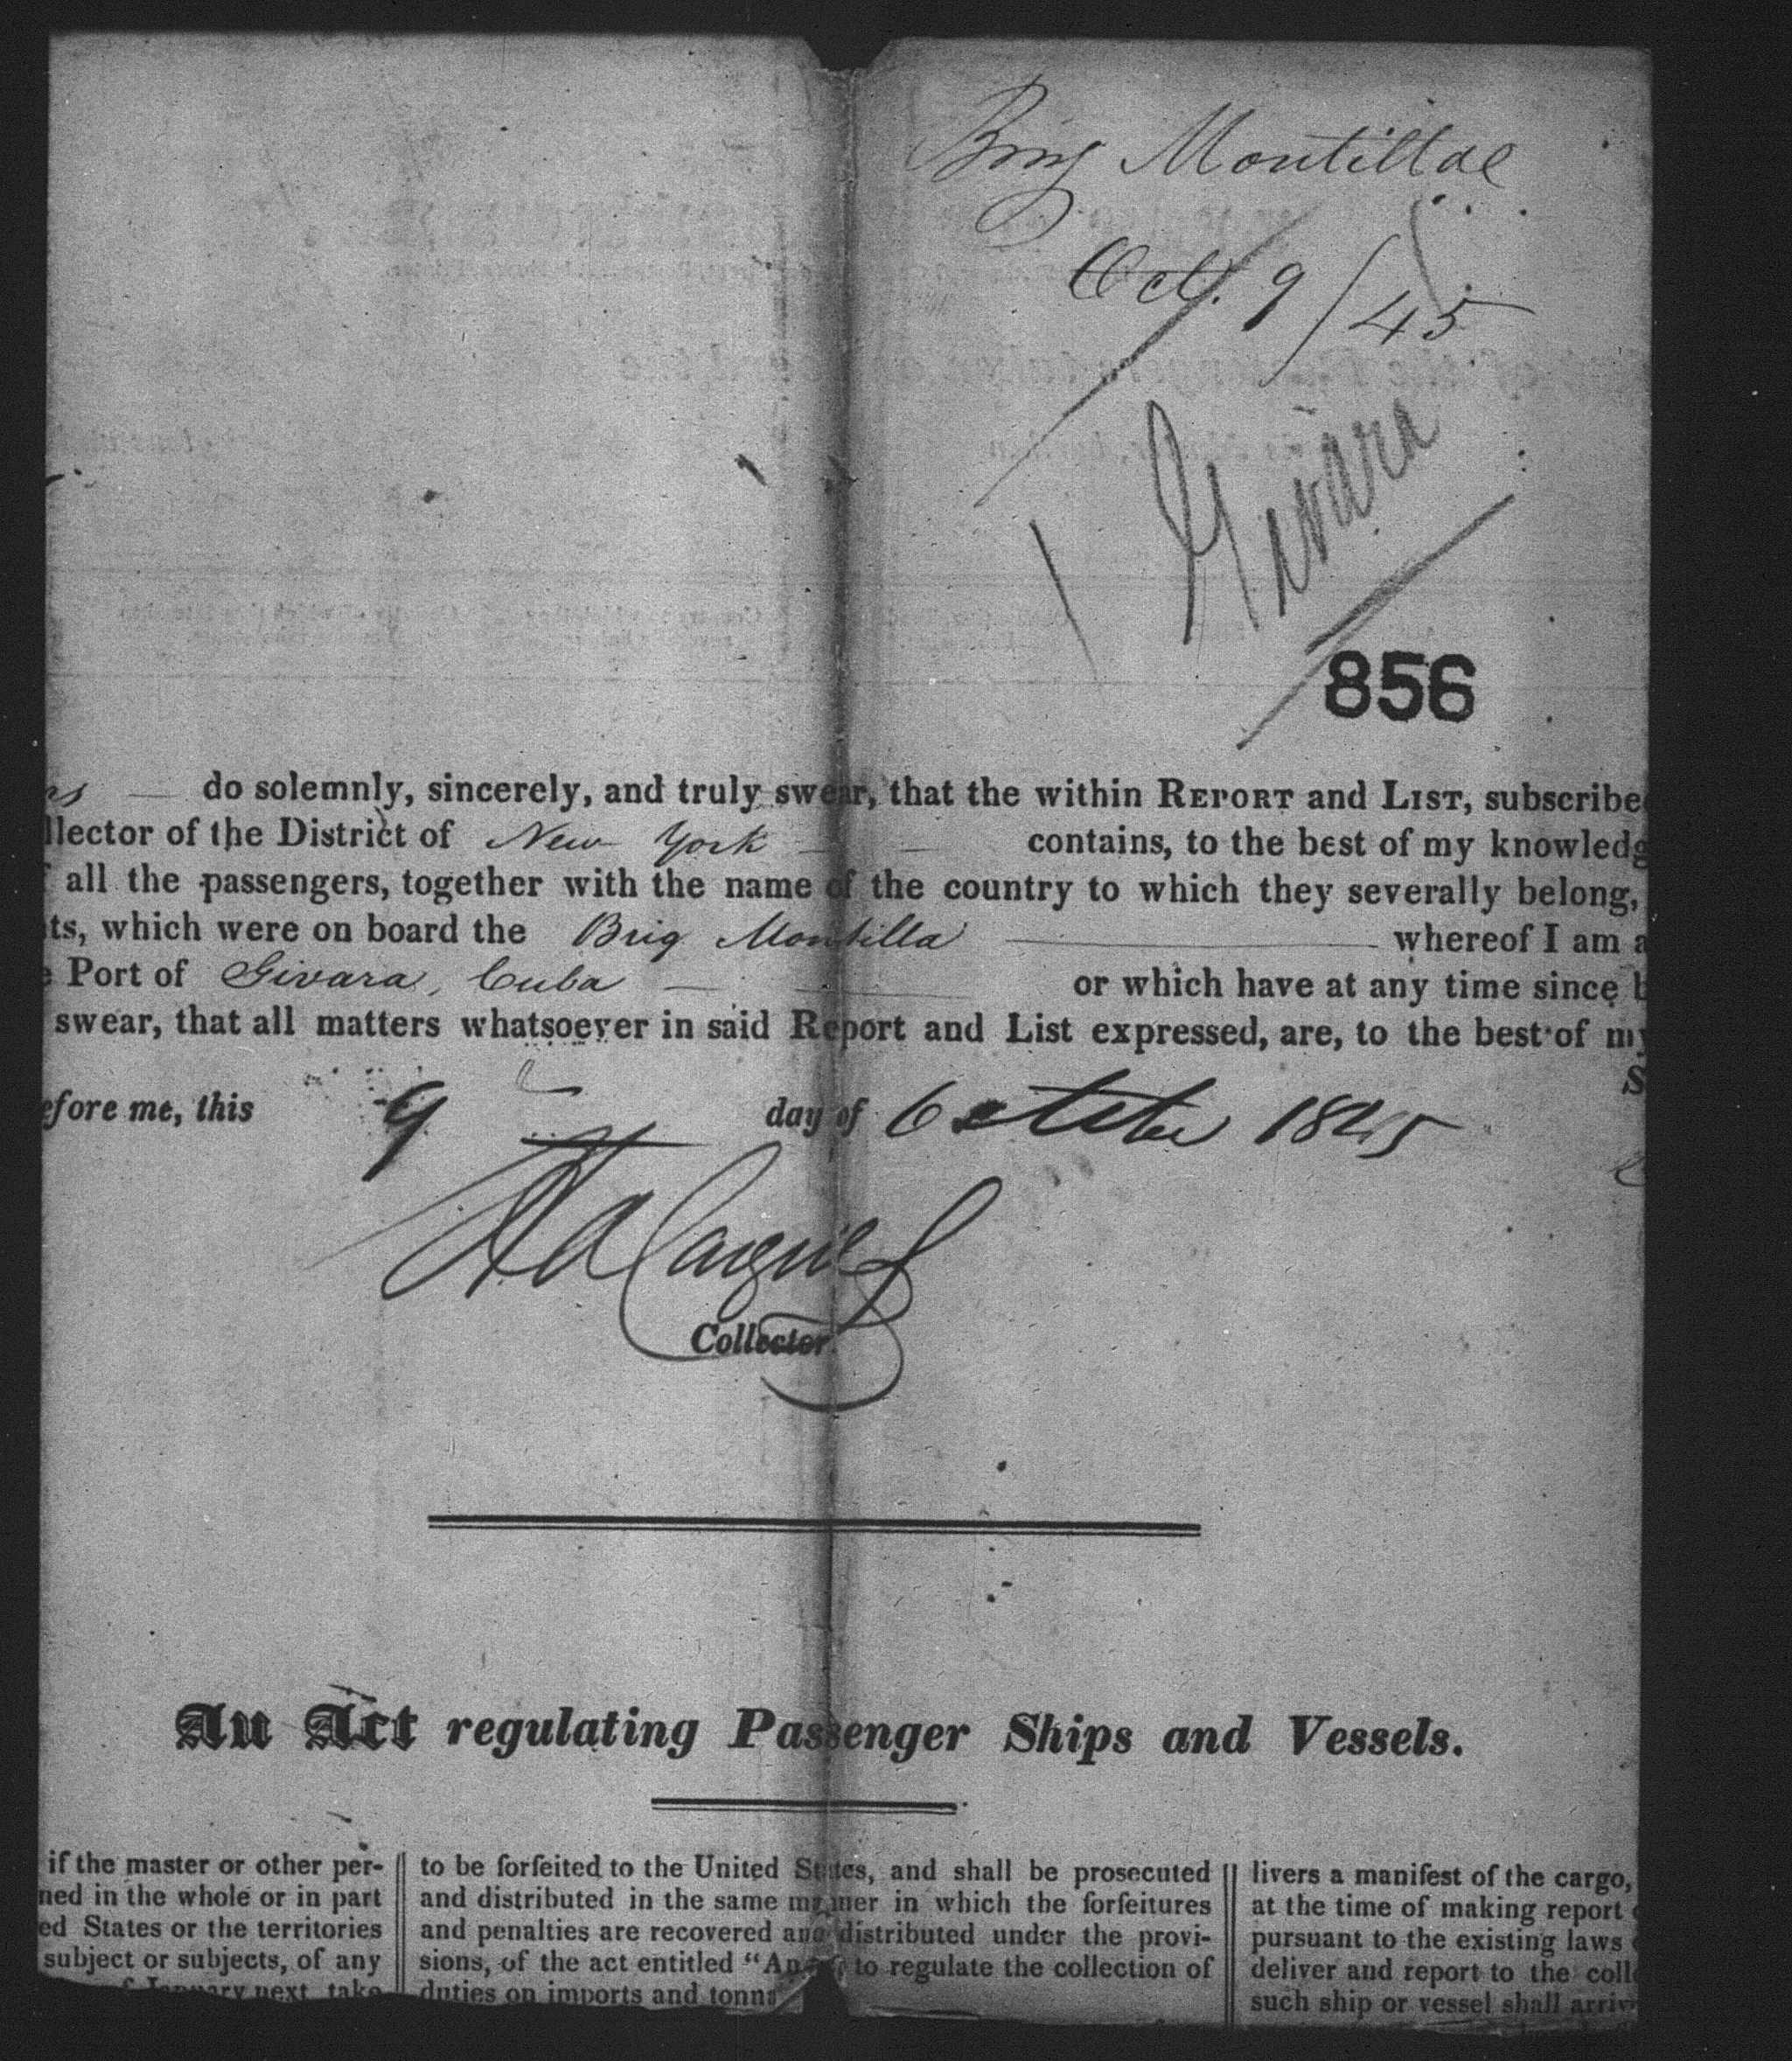 Brig Montilla
Oct. 9/45
Givara
856
do solemnly, sincerely, and truly swear, that the within REPORT and LIST, subscribe
llector of the District of New York contains, to the best of my knowledg
all the passengers, together with the name of the country to which they severally belong,
ts, which were on board the Brig Montilla whereof I am a
Port of Givara, Cuba or which have at any time since b
swear, that all matters whatsoever in said Report and List expressed, are, to the best of my
efore me, this 9 day of October 1845
Collector.
An Act regulating Passenger Ships and Vessels.
if the master or other per-
ned in the whole or in part
ed States or the territories
subject or subjects, of any
of January next, take
to be forfeited to the United States, and shall be prosecuted
and distributed in the same manner in which the forfeitures
and penalties are recovered and distributed under the provi-
sions, of the act entitled "An act to regulate the collection of
duties on imports and tonna
livers a manifest of the cargo,
at the time of making report
pursuant to the existing laws
deliver and report to the coll
such ship or vessel shall arriv